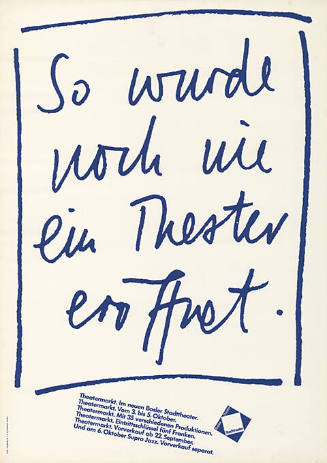 So wurde
noch nie
ein Theater
eröffnet.
Theatermarkt. Im neuen Basler Stadttheater.
Theatermarkt. Vom 3. bis 5. Oktober.
Theatermarkt. Mit 35 verschiedenen Produktionen.
Theatermarkt. Eintrittsschlüssel fünf Franken.
Theatermarkt. Vorverkauf ab 22. September.
Und am 6. Oktober Supra Jazz. Vorverkauf separat.